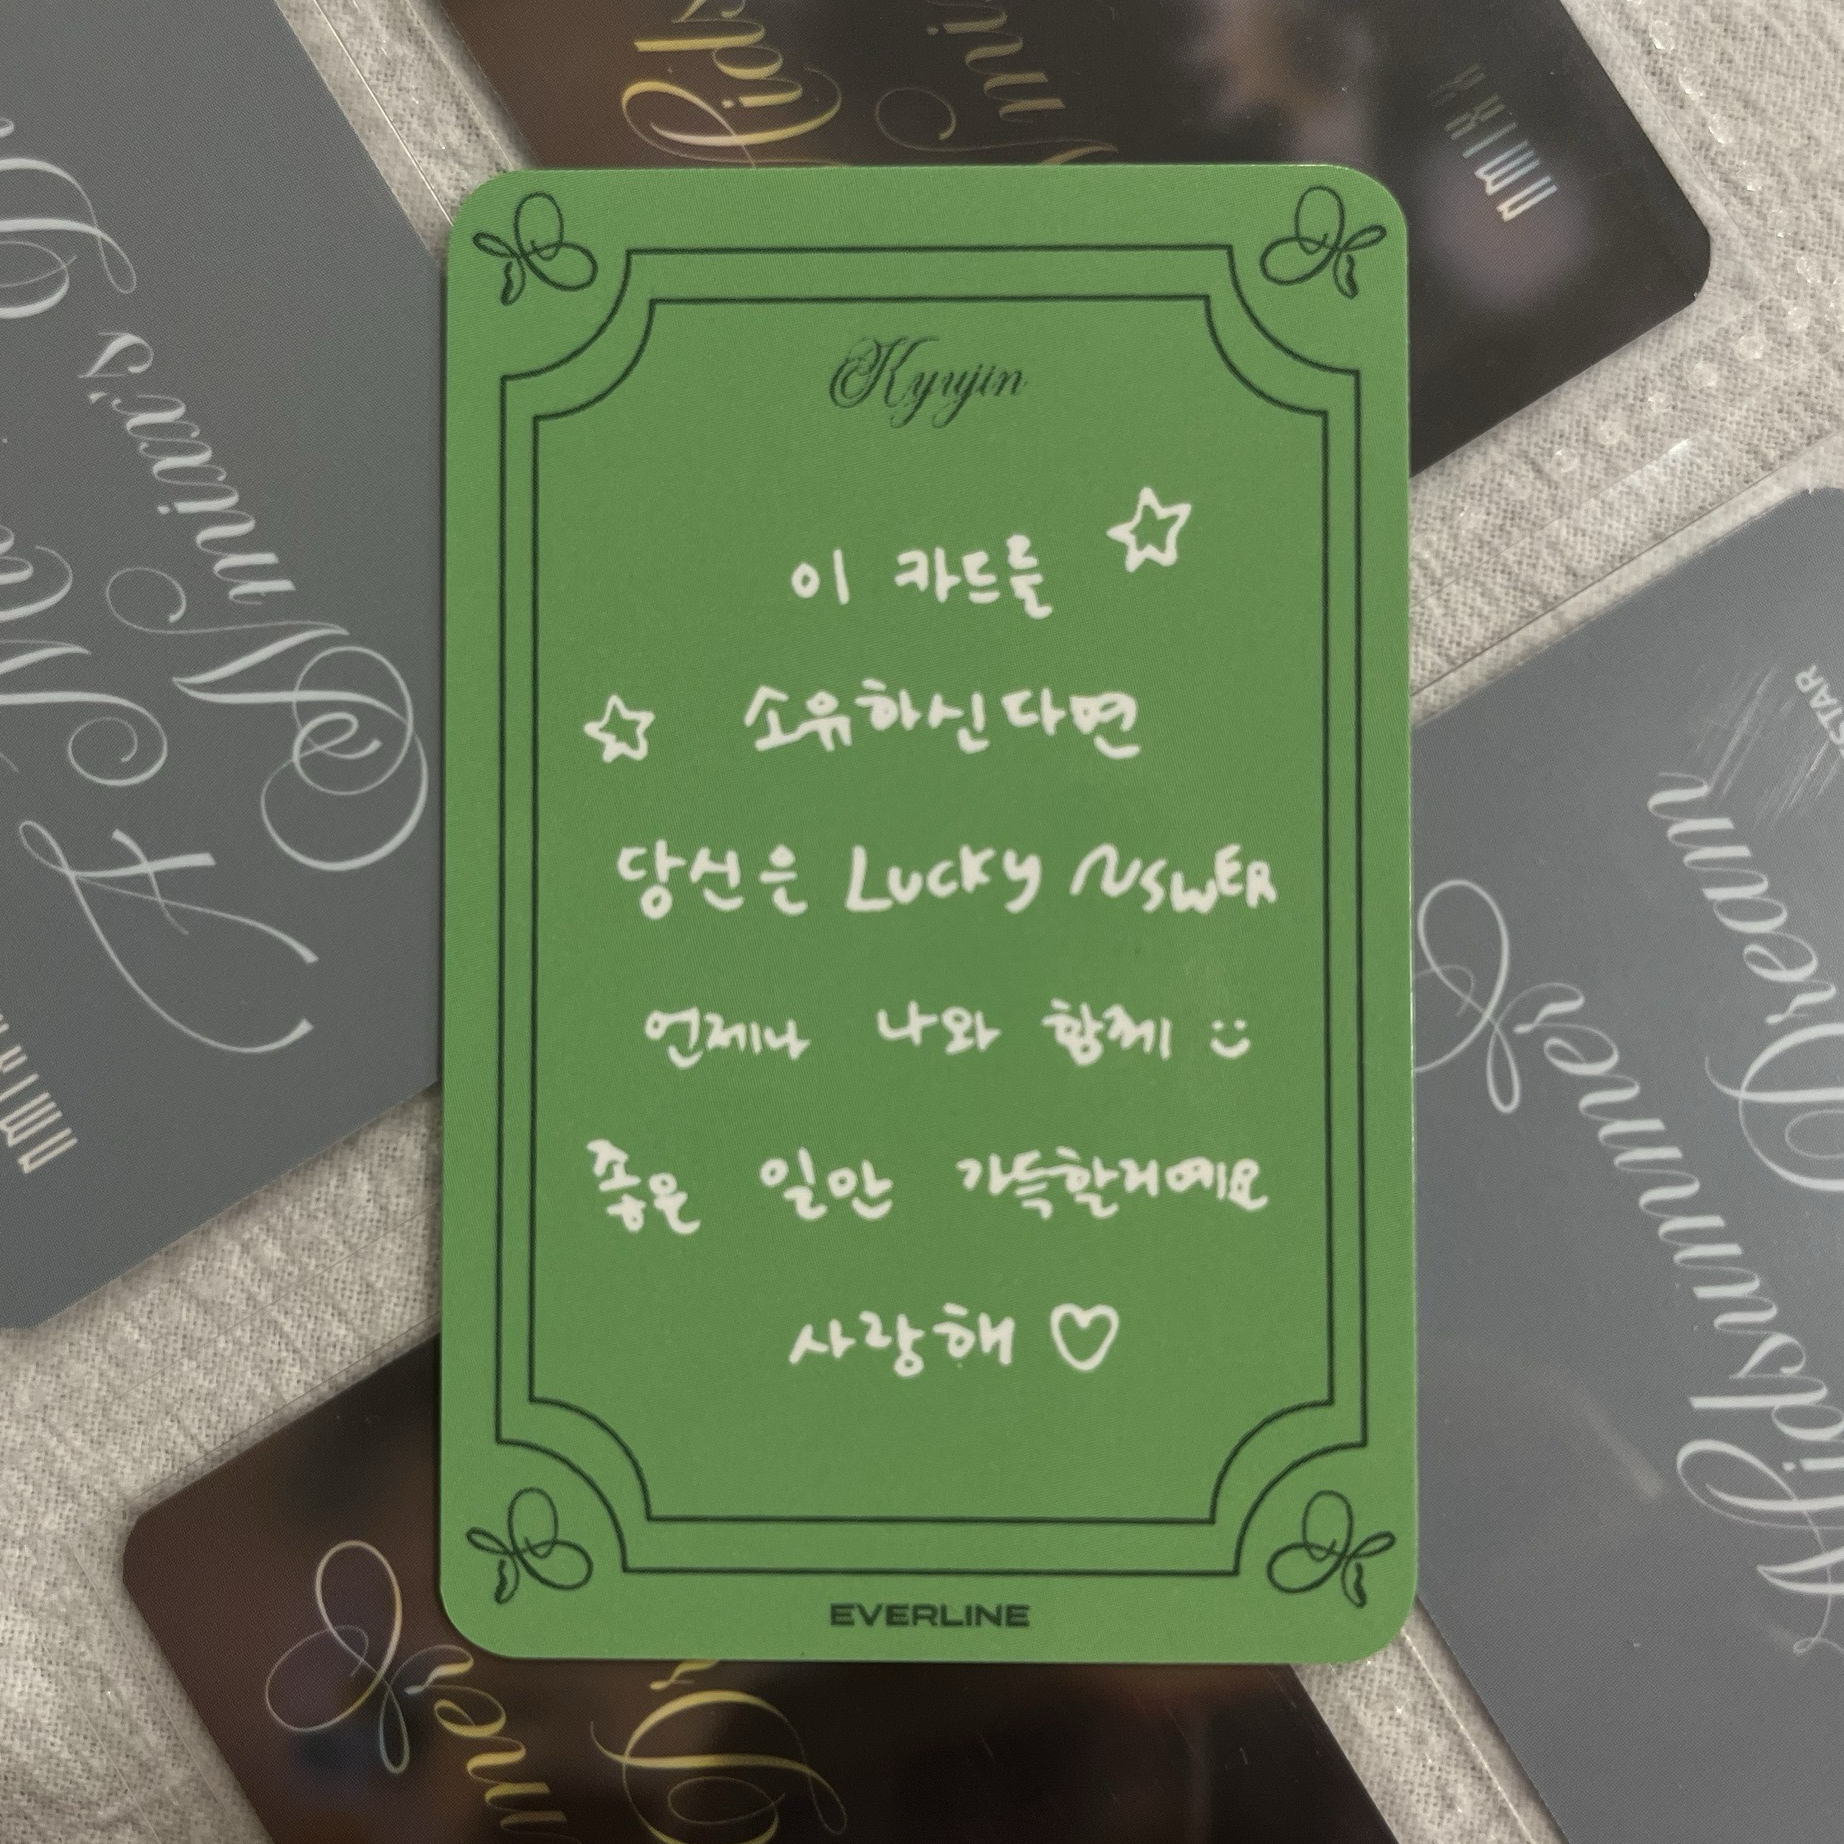 Kyujin
이 카드를
소유하신다면
당신은 Lucky NSWER
언제나 나와 함께 :)
좋은 일만 가득할거예요
사랑해 ♡
EVERLINE
A Midsummer
Nmixx's Dream
NMIXX
Midsummer
Nmixx
NMIXX
Midsummer
Dream
STAR